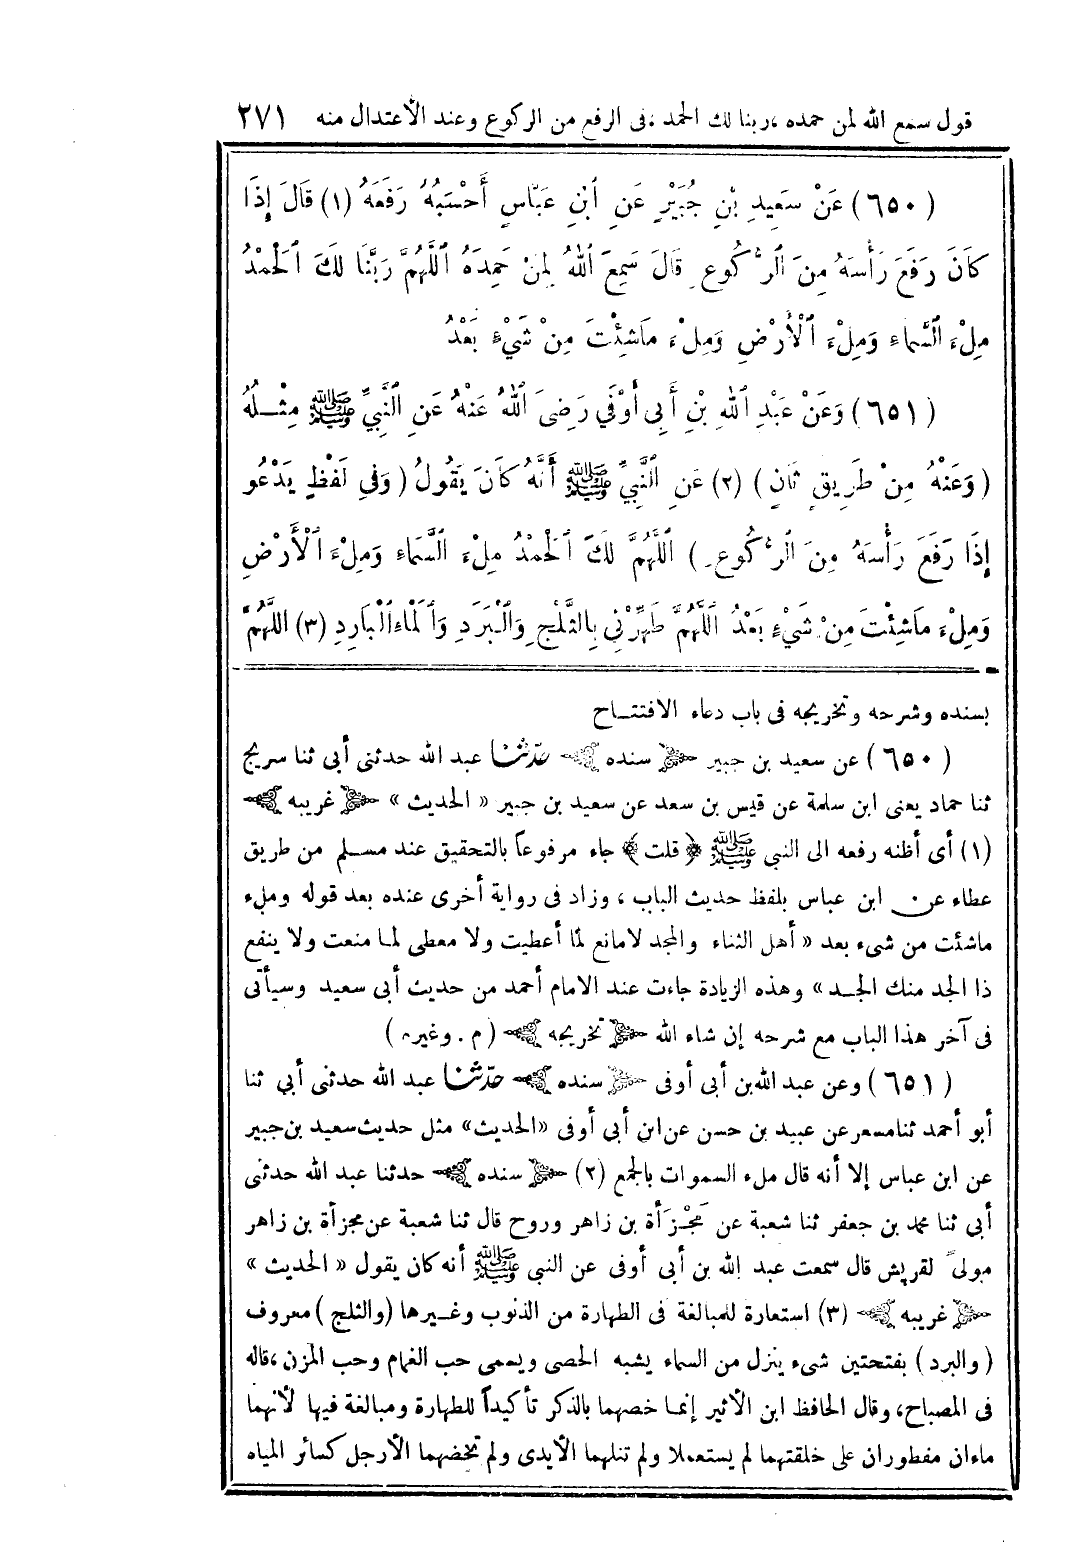 قول سمع الله لمن حمده ،ربنا لك الحمد ،فى الرفع من الركوع وعند الأعتدال منه ٢٧١
( ٦٥٠ ) عَنْ سَعِيدِ بْنِ جُبَيْرٍ عَنِ ٱبْنِ عَبَّاسٍ أَحْسَبُهُ رَفَعَهُ (١) قَالَ إِذَا
كَانَ رَفَعَ رَأْسَهُ مِنَ ٱلرُّكُوعِ قَالَ سَمِعَ ٱللهُ لِمَنْ حَمِدَهُ ٱللَّهُمَّ رَبَّنَا لَكَ ٱلْحَمْدُ
مِلْءَ ٱلسَّمَاءِ وَمِلْءَ ٱلْأَرْضِ وَمِلْءَ مَاشِئْتَ مِنْ شَيْءٍ بَعْدُ
( ٦٥١ ) وَعَنْ عَبْدِ ٱللهِ بْنِ أَبِى أَوْفَي رَضِىَ ٱللهُ عَنْهُ عَنِ ٱلنَّبِيِّ ﷺ مِثْلُهُ
( وَعَنْهُ مِنْ طَرِيقٍ ثَانٍ ) (٢) عَنِ ٱلنَّبِيِّ ﷺ أَنَّهُ كَانَ يَقُولُ ( وَفِي لَفْظٍ يَدْعُو
إِذَا رَفَعَ رَأْسَهُ مِنَ ٱلرُّكُوعِ ) ٱللَّهُمَّ لَكَ ٱلْحَمْدُ مِلْءَ ٱلسَّمَاءِ وَمِلْءَ ٱلْأَرْضِ
وَمِلْءَ مَاشِئْتَ مِنْ شَيْءٍ بَعْدُ ٱللَّهُمَّ طَهِّرْنِي بِالثَّلْجِ وَٱلْبَرَدِ وَٱلْمَاءِ ٱلْبَارِدِ (٣) اللَّهُمَّ
بسنده وشرحه وتخريجه فى باب دعاء الافتتاح
( ٦٥٠ ) عن سعيد بن جبير ﴿ سنده ﴾ حدّثنا عبد الله حدثنى أبى ثنا سريج
ثنا حماد يعنى ابن سلمة عن قيس بن سعد عن سعيد بن جبير « الحديث » ﴿ غريبه ﴾
(١) أى أظنه رفعه الى النبي ﷺ ﴿ قلت ﴾ جاء مرفوعاً بالتحقيق عند مسلم من طريق
عطاء عن ابن عباس بلفظ حديث الباب ، وزاد فى رواية أخرى عنده بعد قوله وملء
ماشئت من شىء بعد « أهل الثناء والمجد لامانع لما أعطيت ولا معطى لما منعت ولا ينفع
ذا الجد منك الجد » وهذه الزيادة جاءت عند الامام أحمد من حديث أبى سعيد وسيأتى
فى آخر هذا الباب مع شرحه إن شاء الله ﴿ تخريجه ﴾ ( م . وغيره )
( ٦٥١ ) وعن عبد الله بن أبى أوفى ﴿ سنده ﴾ حدّثنا عبد الله حدثنى أبي ثنا
أبو أحمد ثنا مسعر عن عبيد بن حسن عن ابن أبي أوفى «الحديث» مثل حديث سعيد بن جبير
عن ابن عباس إلا أنه قال ملء السموات بالجمع (٢) ﴿ سنده ﴾ حدثنا عبد الله حدثنى
أبي ثنا محمد بن جعفر ثنا شعبة عن مَجْزَأة بن زاهر وروح قال ثنا شعبة عن مجزأة بن زاهر
مولىً لقريش قال سمعت عبد الله بن أبى أوفى عن النبي ﷺ أنه كان يقول « الحديث »
﴿ غريبه ﴾ (٣) استعارة للمبالغة فى الطهارة من الذنوب وغيرها (والثلج ) معروف
( والبرد ) بفتحتين شىء ينزل من السماء يشبه الحصى ويسمى حب الغمام وحب المزن ،قاله
فى المصباح، وقال الحافظ ابن الأثير إنما خصهما بالذكر تأكيداً للطهارة ومبالغة فيها لأنهما
ماءان مفطوران على خلقتهما لم يستعملا ولم تنلهما الأيدى ولم تخضهما الأرجل كسائر المياه